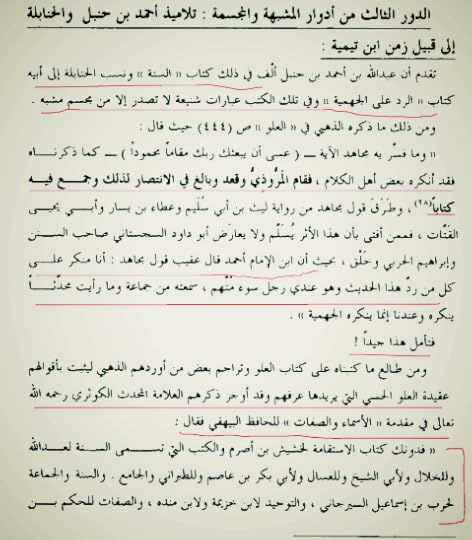 الدور الثالث من أدوار المشبهة والمجسمة : تلاميذ أحمد بن حنبل والحنابلة
إلى قبيل زمن ابن تيمية :
تقدم أن عبدالله بن أحمد بن حنبل ألّف في ذلك كتاب « السنة » ونسب الحنابلة إلى أبيه
كتاب « الرد على الجهمية » وفي تلك الكتب عبارات شنيعة لا تصدر إلا من مجسم مشبه .
ومن ذلك ما ذكره الذهبي في « العلو » ص (٤٤٤) حيث قال :
« وما فسَّر به مجاهد الآية ــ ( عسى أن يبعثك ربك مقاماً محموداً ) ــ كما ذكرناه
فقد أنكره بعض أهل الكلام ، فقام المرُّوذيُّ وقعد وبالغ في الانتصار لذلك وجمع فيه
كتاباً(١٨) ، وطَرَّقَ قول مجاهد من رواية ليث بن أبي سُلَيم وعطاء بن يسار وأبي يحيى
القتَّات ، فممن أفتى بأن هذا الأثر يُسَلَّم ولا يعارَض أبو داود السجستاني صاحب السنن
وإبراهيم الحربي وخَلْق ، بحيث أن ابن الإمام أحمد قال عقيب قول مجاهد : أنا منكر على
كل من ردَّ هذا الحديث وهو عندي رجل سوء متَّهم ، سمعته من جماعة وما رأيت محدِّثاً
ينكره وعندنا إنما ينكره الجهمية » .
فتأمل هذا جيداً !
ومن طالع ما كتبناه على كتاب العلو وتراجم بعض من أوردهم الذهبي ليثبت بأقوالهم
عقيدة العلو الحسي التي يريدها عرفهم وقد أوجز ذكرهم العلامة المحدث الكوثري رحمه الله
تعالى في مقدمة « الأسماء والصفات » للحافظ البيهقي فقال :
« فدونك كتاب الاستقامة لخشيش بن أصرم والكتب التي تسمى السنة لعبدالله
وللخلال ولأبي الشيخ وللعسال ولأبي بكر بن عاصم وللطبراني والجامع . والسنة والجماعة
لحرب بن إسماعيل السيرجاني ، والتوحيد لابن خزيمة ولابن منده ، والصفات للحكم بن